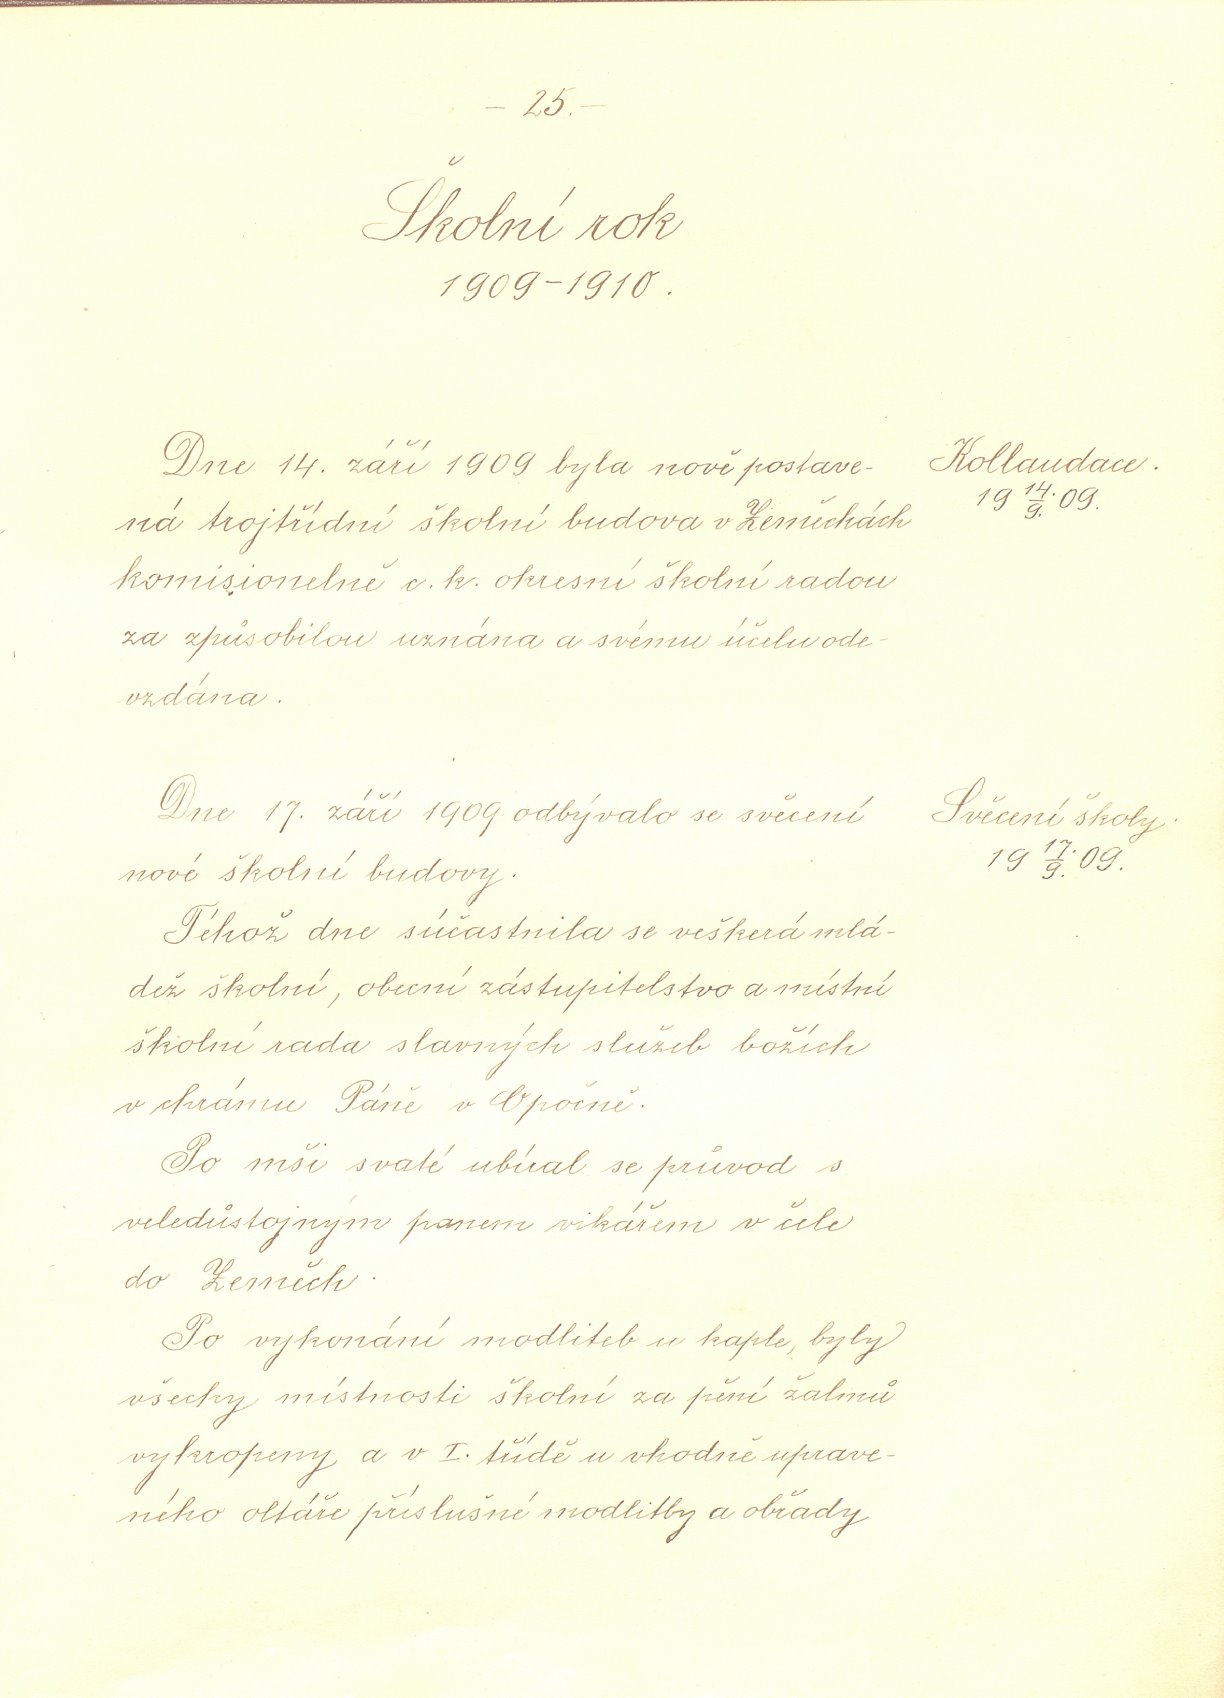 – 25. –
Školní rok
1909–1910.
Dne 14. září 1909 byla nově postave-
ná trojtřídní školní budova v Žeměchách
komisionelně c. k. okresní školní radou
za způsobilou uznána a svému účelu ode-
vzdána.
Kollaudace.
19 14./9. 09.
Dne 17. září 1909 odbývalo se svěcení
nové školní budovy.
Svěcení školy.
19 17./9. 09.
Téhož dne súčastnila se veškerá mlá-
dež školní, obecní zástupitelstvo a místní
školní rada slavných služeb božích
v chrámu Páně v Opočně.
Po mši svaté ubíral se průvod s
veledůstojným panem vikářem v čele
do Žeměch.
Po vykonání modliteb u kaple, byly
všecky místnosti školní za pění žalmů
vykropeny a v I. třídě u vhodně uprave-
ného oltáře příslušné modlitby a obřady